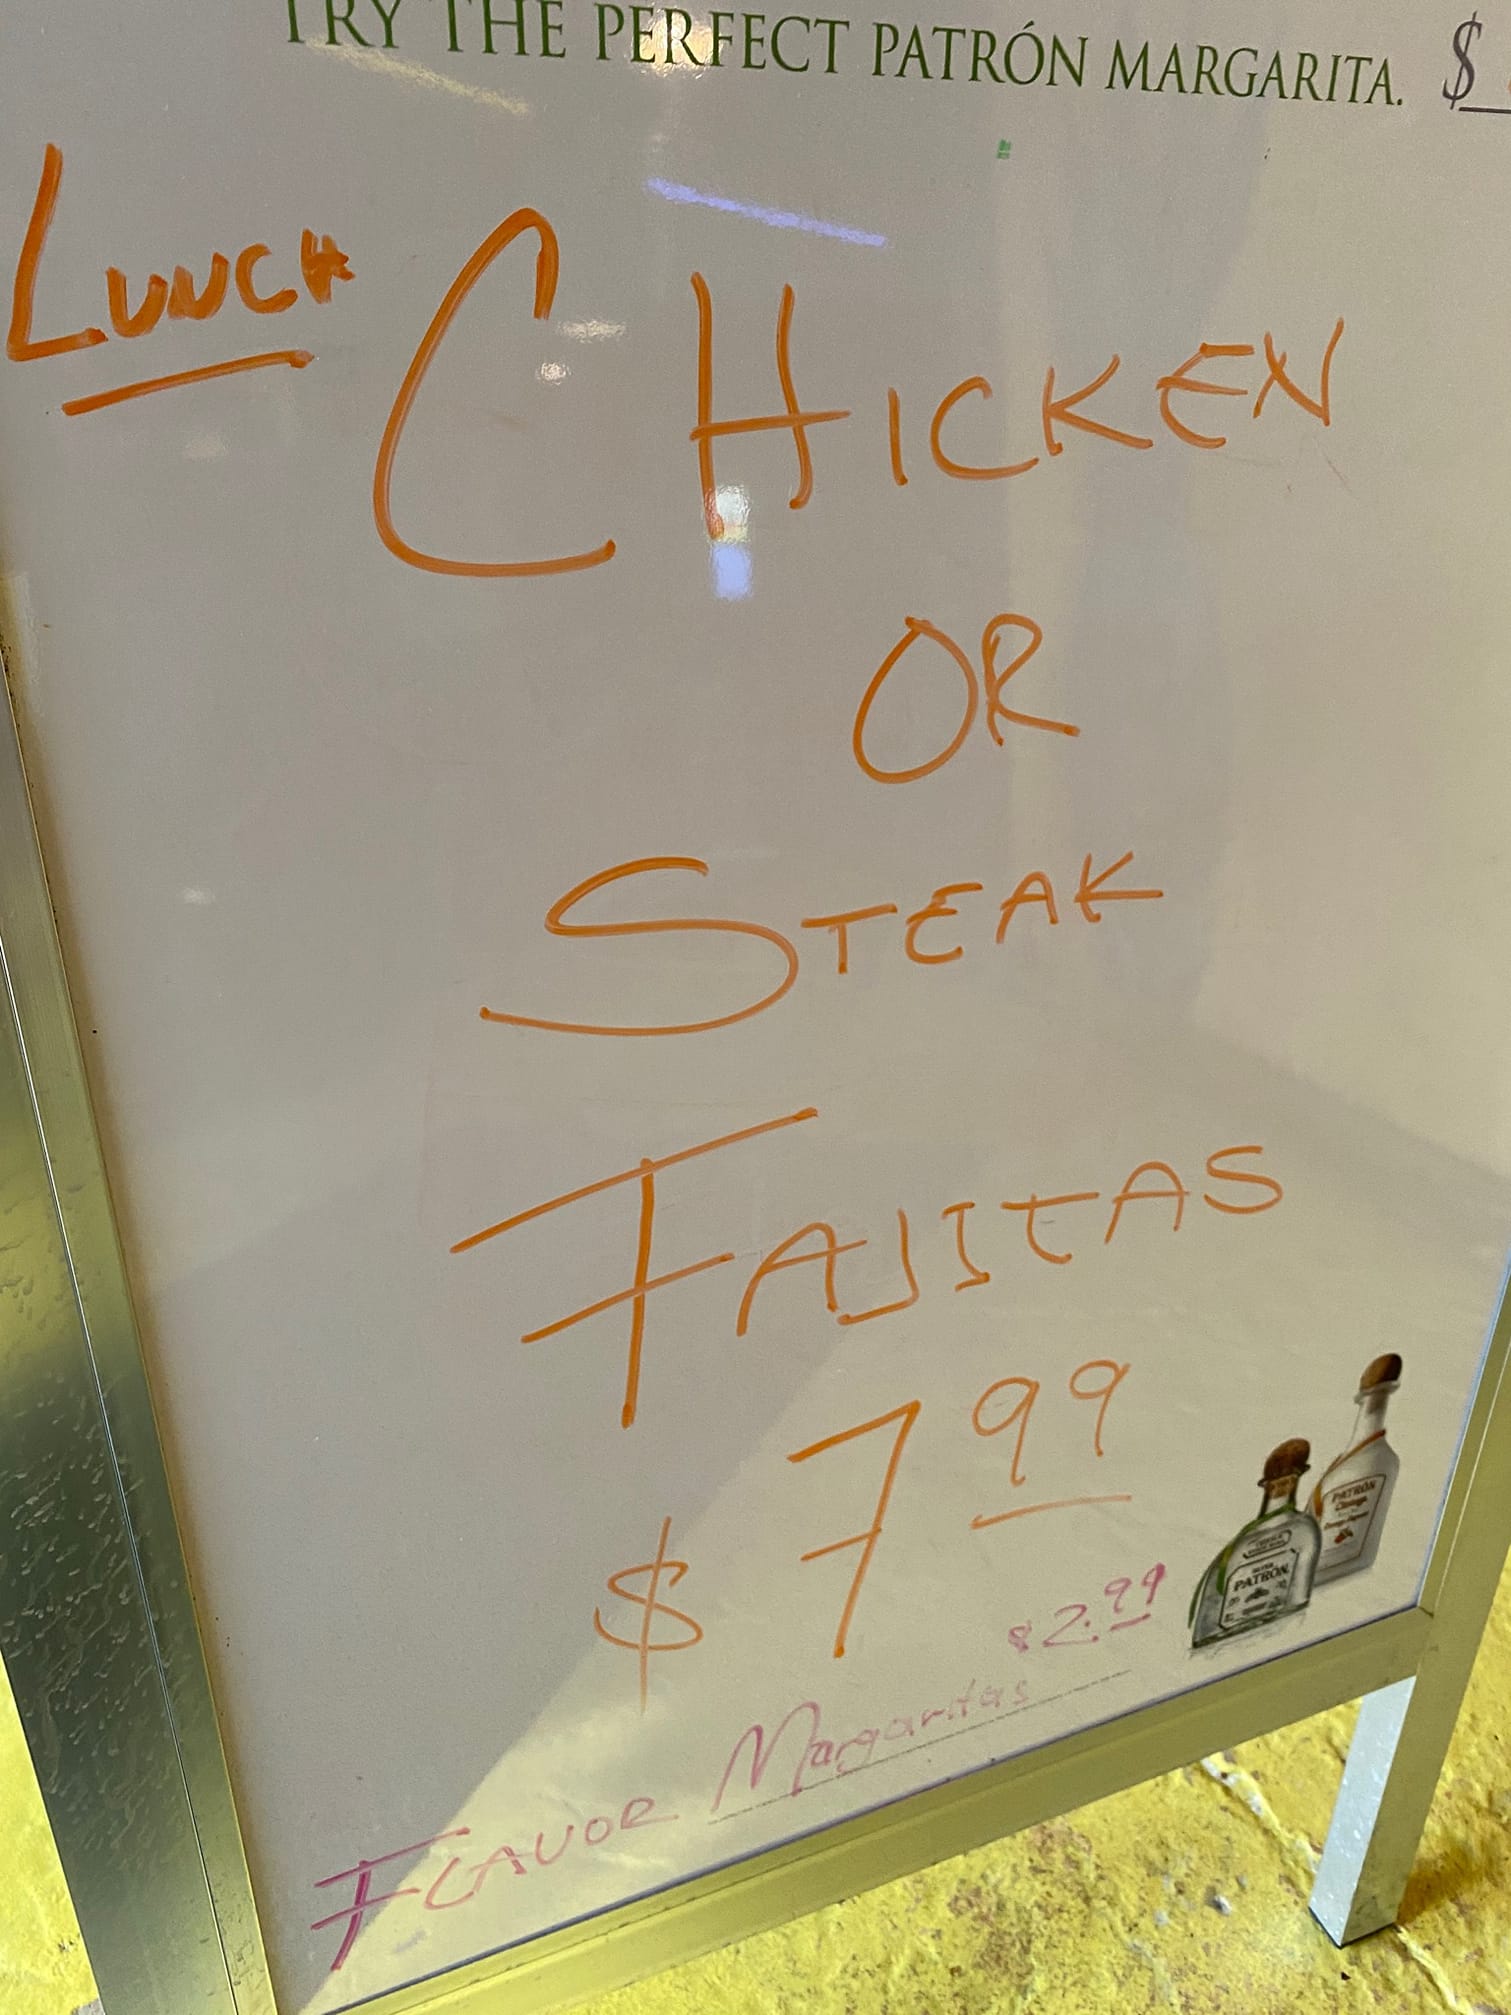 TRY THE PERFECT PATRÓN MARGARITA. $
LUNCH
CHICKEN
OR
STEAK
FAJITAS
$7.99
$2.99
FLAVOR Margaritas
PATRÓN
PATRÓN